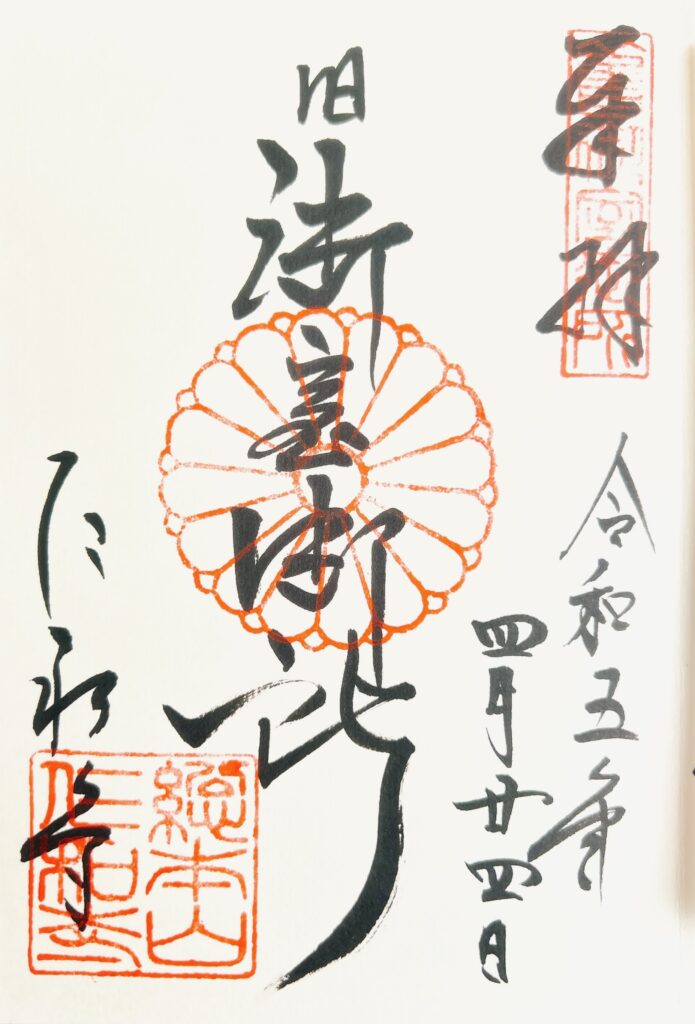 奉拝
令和五年
四月廿四日
旧御室御所
仁和寺
総本山
仁和寺